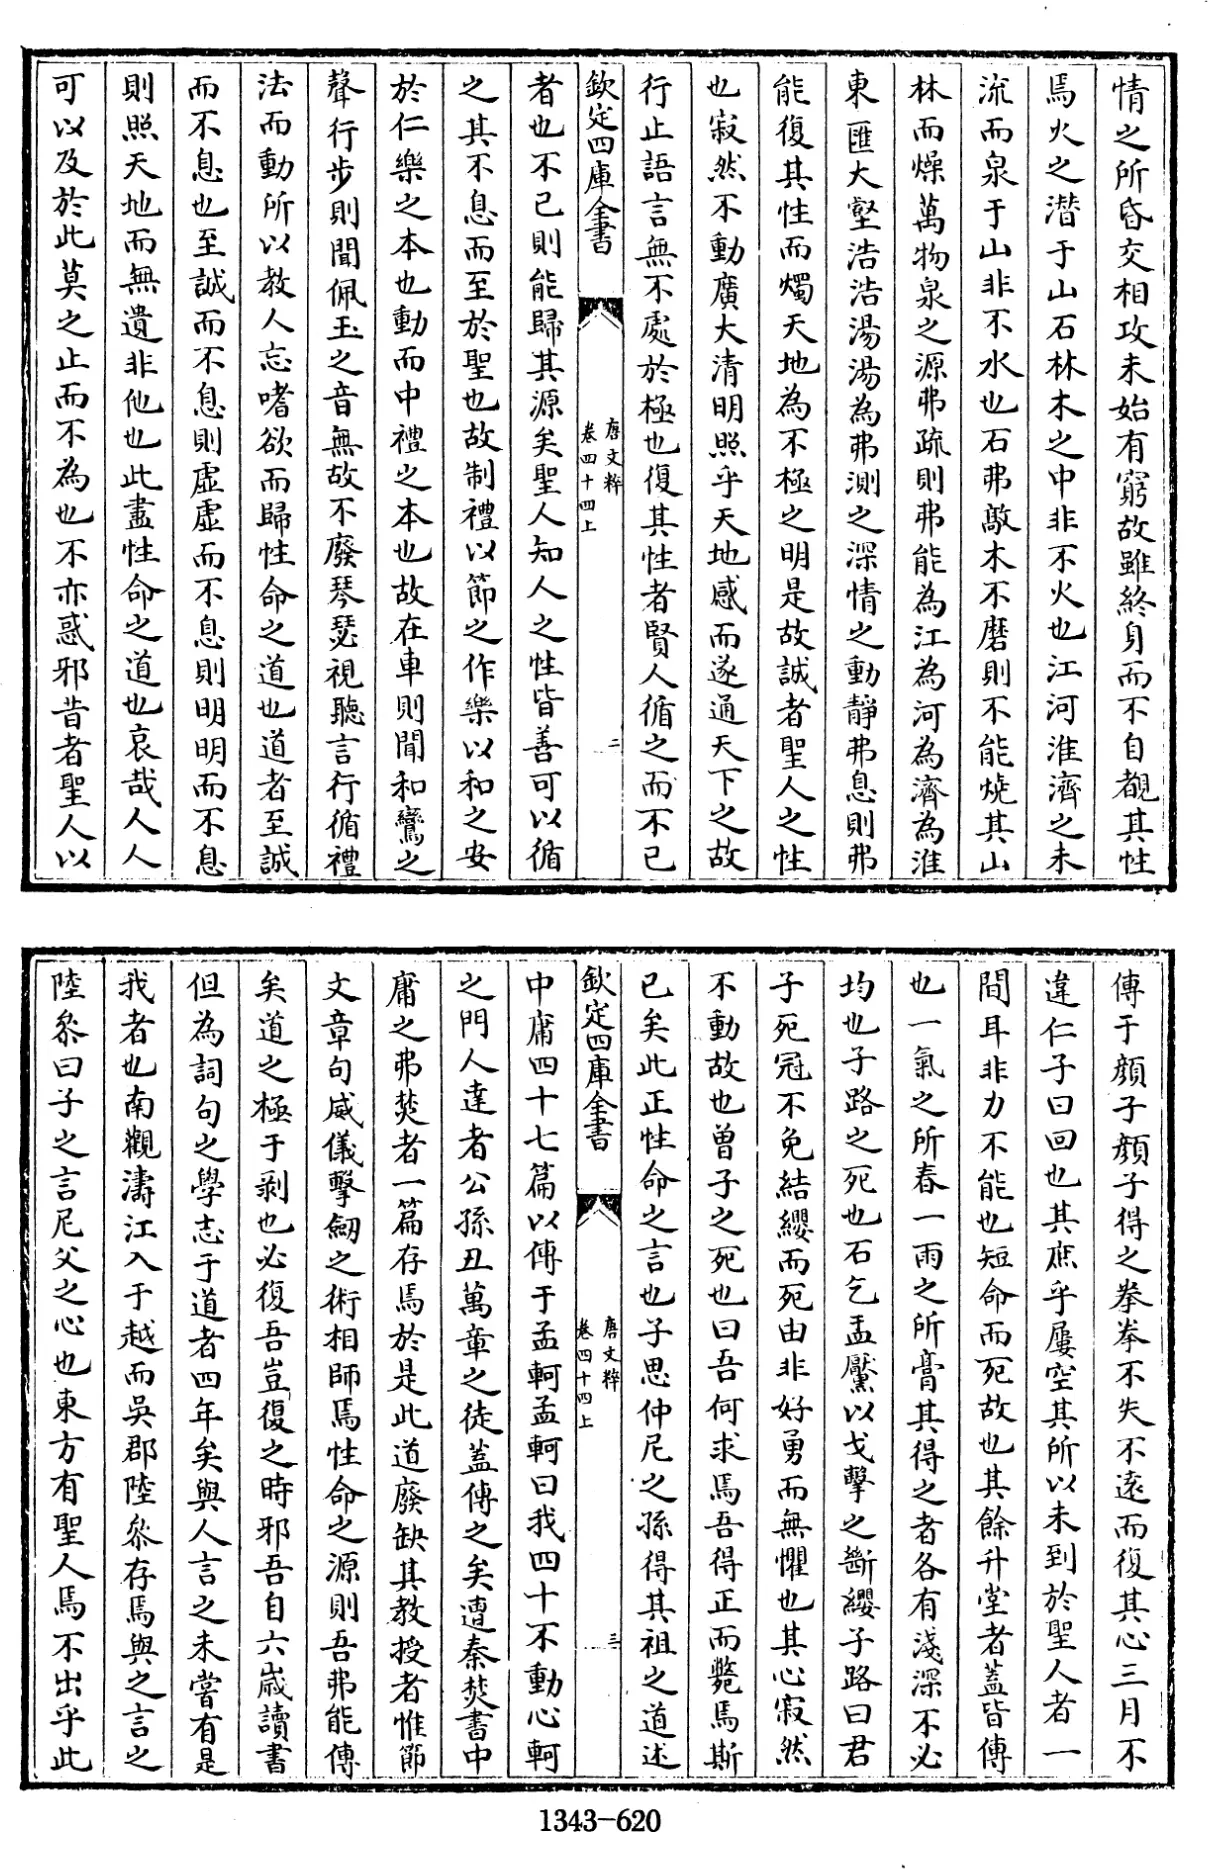 情之所昏交相攻未始有窮故雖終身而不自覩其性
焉火之潜于山石林木之中非不火也江河淮濟之未
流而泉于山非不水也石弗敲木不磨則不能燒其山
林而燥萬物泉之源弗疏則弗能為江為河為濟為淮
東匯大壑浩浩湯湯為弗測之深情之動靜弗息則弗
能復其性而燭天地為不極之明是故誠者聖人之性
也寂然不動廣大清明照乎天地感而遂通天下之故
行止語言無不處於極也復其性者賢人循之而不已
欽定四庫全書
唐文粹
卷四十四上
二
者也不已則能歸其源矣聖人知人之性皆善可以循
之其不息而至於聖也故制禮以節之作樂以和之安
於仁樂之本也動而中禮之本也故在車則聞和鸞之
聲行步則聞佩玉之音無故不廢琴瑟視聽言行循禮
法而動所以教人忘嗜欲而歸性命之道也道者至誠
而不息也至誠而不息則虛虛而不息則明明而不息
則照天地而無遺非他也此盡性命之道也哀哉人人
可以及於此莫之止而不為也不亦惑邪昔者聖人以
傳于顏子顏子得之拳拳不失不遠而復其心三月不
違仁子曰回也其庶乎屢空其所以未到於聖人者一
間耳非力不能也短命而死故也其餘升堂者蓋皆傳
也一氣之所春一雨之所膏其得之者各有淺深不必
均也子路之死也石乞盂黶以戈擊之斷纓子路曰君
子死冠不免結纓而死由非好勇而無懼也其心寂然
不動故也曾子之死也曰吾何求焉吾得正而斃焉斯
已矣此正性命之言也子思仲尼之孫得其祖之道述
欽定四庫全書
唐文粹
卷四十四上
三
中庸四十七篇以傳于孟軻孟軻曰我四十不動心軻
之門人達者公孫丑萬章之徒蓋傳之矣遭秦焚書中
庸之弗焚者一篇存焉於是此道廢缺其教授者惟節
文章句威儀擊劒之術相師焉性命之源則吾弗能傳
矣道之極于剥也必復吾豈復之時邪吾自六歲讀書
但為詞句之學志于道者四年矣與人言之未嘗有是
我者也南觀濤江入于越而吳郡陸叅存焉與之言之
陸叅曰子之言尼父之心也東方有聖人焉不出乎此
1343-620